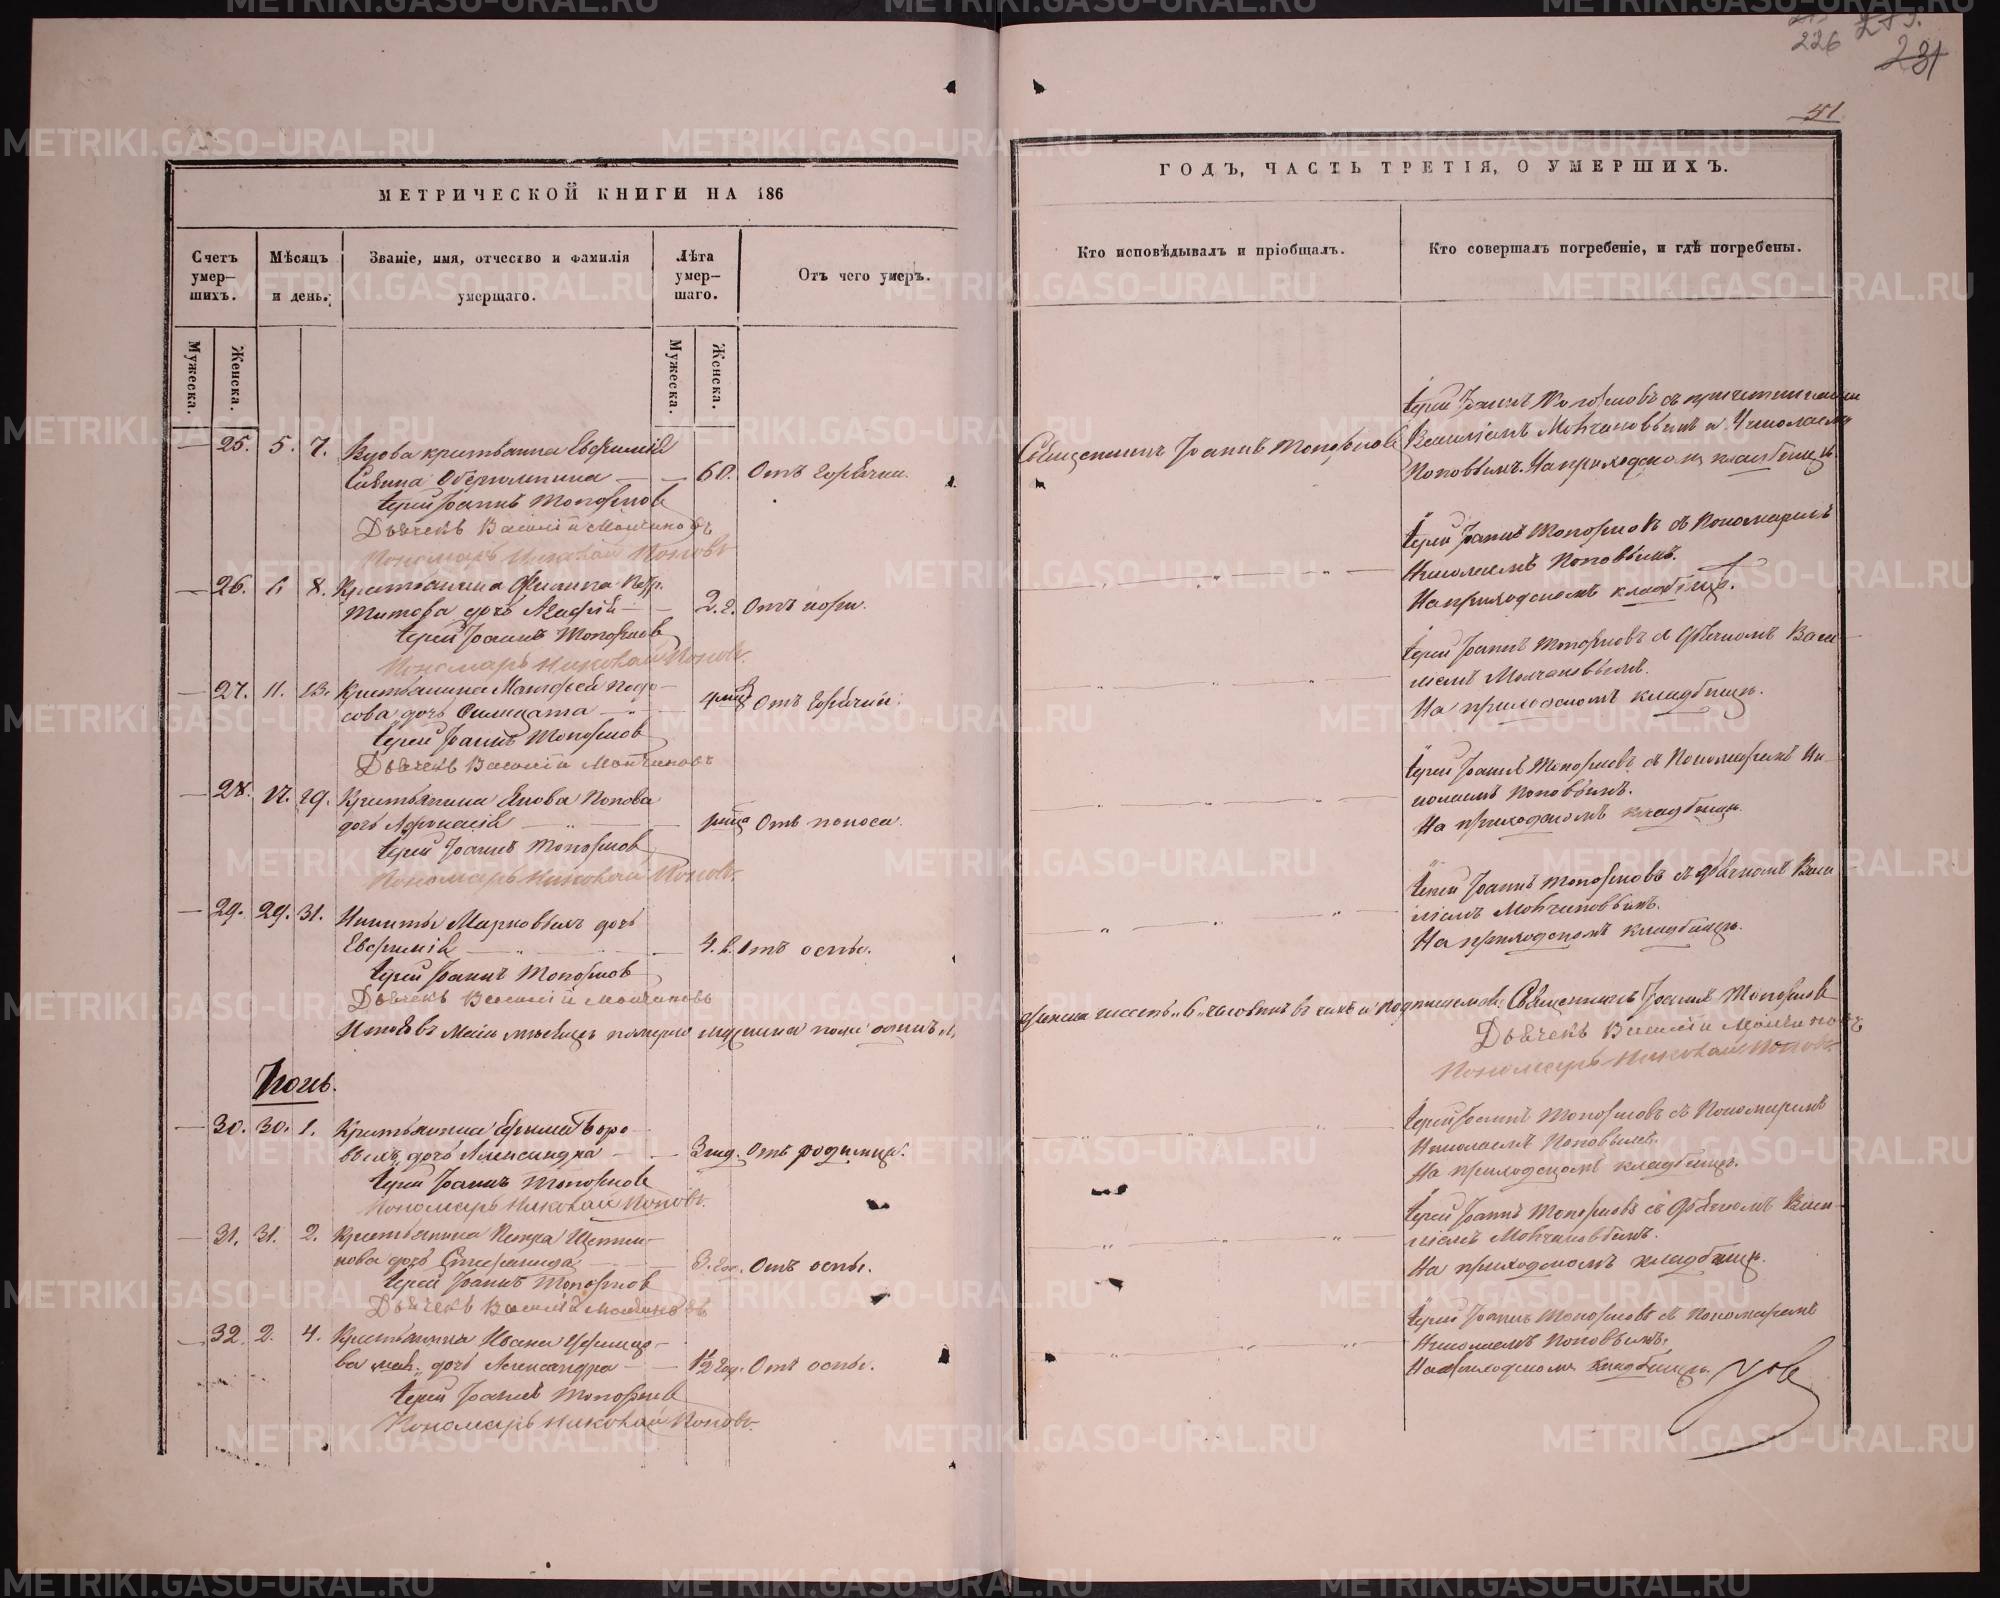 226
231
51
МЕТРИЧЕСКОЙ КНИГИ НА 186
ГОДЪ, ЧАСТЬ ТРЕТІЯ, О УМЕРШИХЪ.
Счетъ умер-шихъ.
Мѣсяцъ и день.
Званіе, имя, отчество и фамилія умершаго.
Лѣта умер-шаго.
Отъ чего умеръ.
Кто исповѣдывалъ и пріобщалъ.
Кто совершалъ погребеніе, и гдѣ погребены.
Мужеска.
Женска.
Мужеска.
Женска.
25. 5. 7. Вдова крестьянка Евфимія
60. Отъ горячки.
Іерей Іоаннъ Топорковъ
Дьячекъ Василій Молчановъ
Пономарь Николай Поповъ
Священникъ Іоаннъ Топорковъ
Іерей Іоаннъ Топорковъ съ причетниками
Василіемъ Молчановымъ и Николаемъ
Поповымъ. На приходскомъ кладбищѣ.
26. 6 8. Крестьянина Филиппа
Титова дочь
2. г. Отъ кори.
Іерей Іоаннъ Топорковъ
Пономарь Николай Поповъ.
Іерей Іоаннъ Топорковъ съ Пономаремъ
Николаемъ Поповымъ.
На приходскомъ кладбищѣ.
27. 11. 13. Крестьянина Матфея
дочь
Отъ горячки.
Іерей Іоаннъ Топорковъ
Дьячекъ Василій Молчановъ
Іерей Іоаннъ Топорковъ съ Дьячкомъ Васи-
ліемъ Молчановымъ.
На приходскомъ кладбищѣ.
28. 17. 19. Крестьянина Попова
дочь
Отъ поноса.
Іерей Іоаннъ Топорковъ
Пономарь Николай Поповъ.
Іерей Іоаннъ Топорковъ съ Пономаремъ Ни-
колаемъ Поповымъ.
На приходскомъ кладбищѣ.
29. 29. 31. Никиты Марковыхъ дочь
Евфимія
Отъ оспы.
Іерей Іоаннъ Топорковъ
Дьячекъ Василій Молчановъ
Іерей Іоаннъ Топорковъ съ Дьячкомъ Васи
ліемъ Молчановымъ.
На приходскомъ кладбищѣ.
Итого въ Маѣ мѣсяцѣ померло мужеска пола одинъ 1,
женска шесть 6 человѣкъ въ чемъ и подписуемся: Священникъ Іоаннъ Топорковъ
Дьячекъ Василій Молчановъ
Пономарь Николай Поповъ.
Іюнь.
30. 30. 1. Крестьянина
дочь Александра
Отъ родимца.
Іерей Іоаннъ Топорковъ
Пономарь Николай Поповъ.
Іерей Іоаннъ Топорковъ съ Пономаремъ
Николаемъ Поповымъ.
На приходскомъ кладбищѣ.
31. 31. 2. Крестьянина Петра
дочь Стефанида
Отъ оспы.
Іерей Іоаннъ Топорковъ
Дьячекъ Василій Молчановъ
Іерей Іоаннъ Топорковъ съ Дьячкомъ Васи-
ліемъ Молчановымъ.
На приходскомъ кладбищѣ.
32. 2. 4. Крестьянина Ивана
дочь Александра
1½ год. Отъ оспы.
Іерей Іоаннъ Топорковъ
Пономарь Николай Поповъ.
Іерей Іоаннъ Топорковъ съ Пономаремъ
Николаемъ Поповымъ.
На приходскомъ кладбищѣ.
METRIKI.GASO-URAL.RU